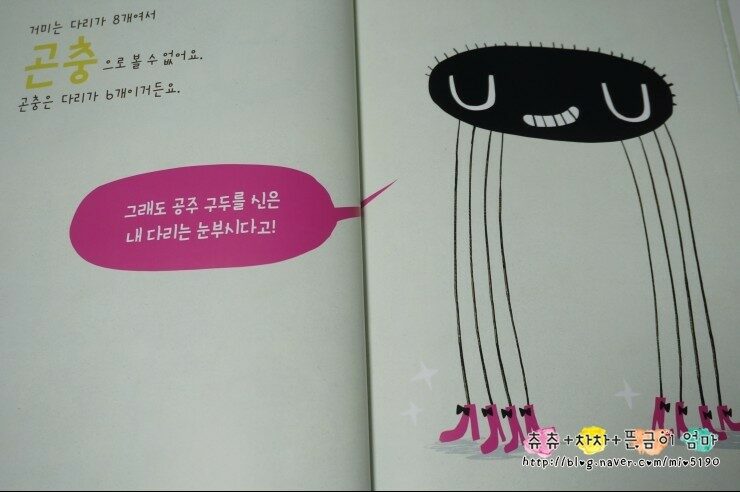 거미는 다리가 8개여서
곤충으로 볼 수 없어요.
곤충은 다리가 6개이거든요.
그래도 공주 구두를 신은
내 다리는 눈부시다고!
츄츄+차차+뜬금이 엄마
http://blog.naver.com/mio5190